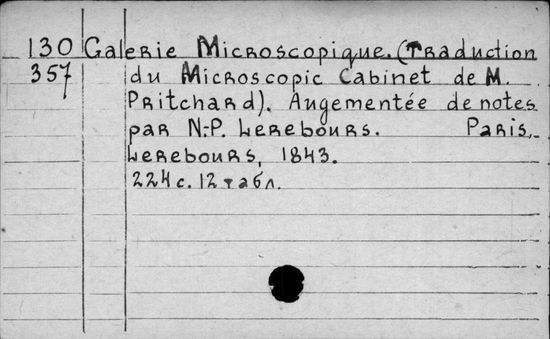 130 Galerie Microscopique. (Traduction
357 du Microscopic Cabinet de M.
Pritchard). Augementée de notes
par N.-P. Lerebours. Paris,
Lerebours, 1843.
224 с. 12 табл.